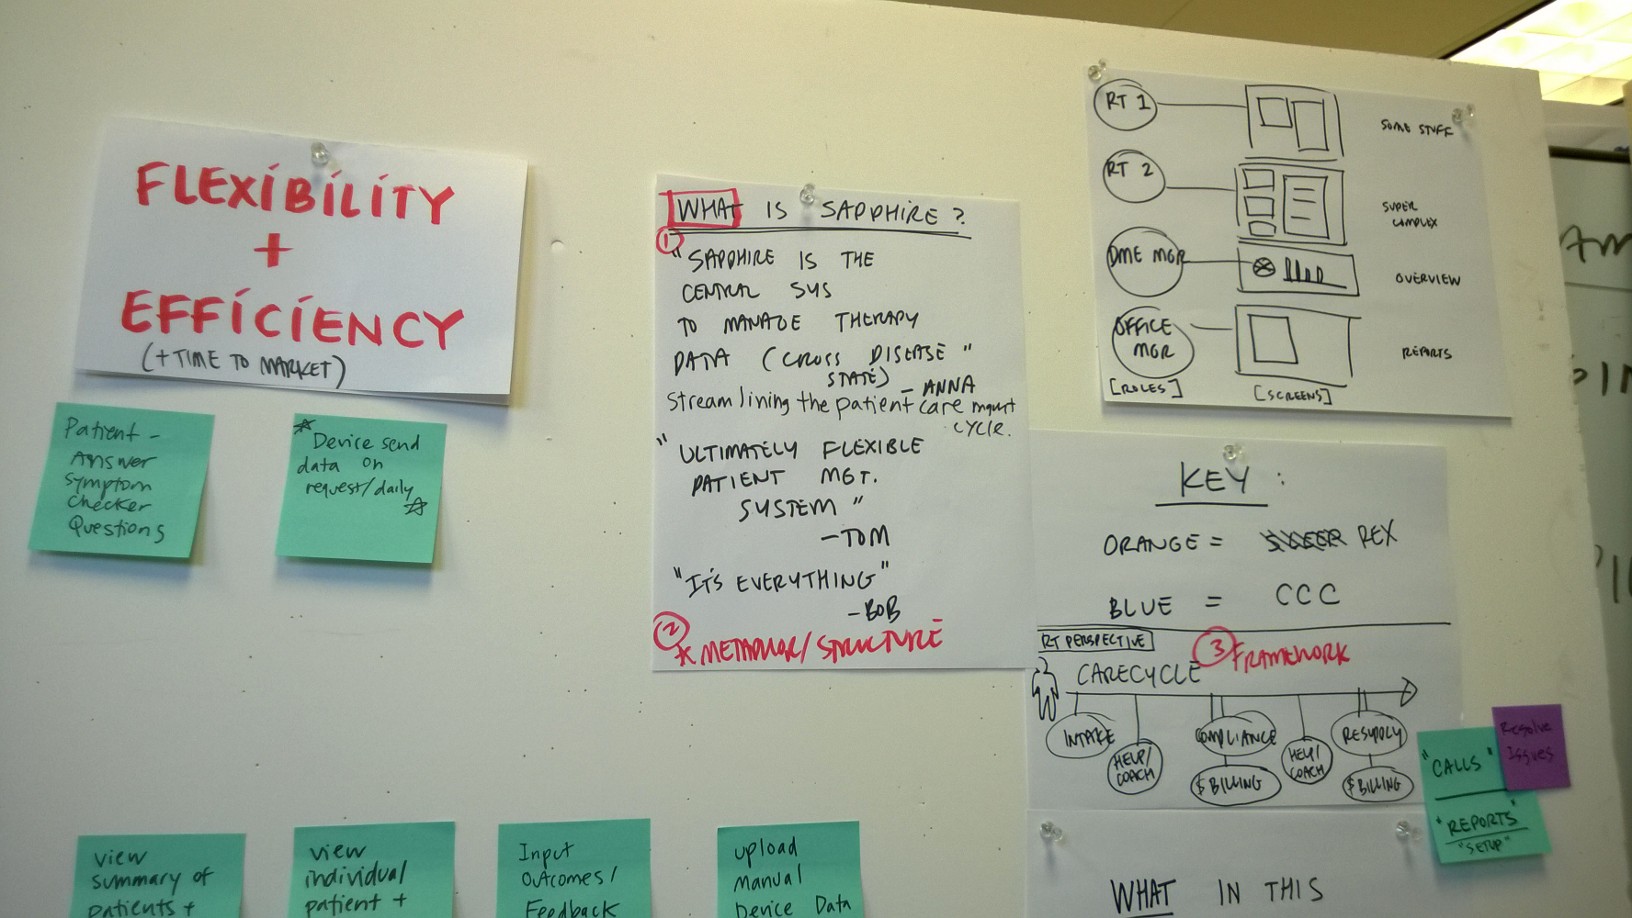 FLEXIBILITY
+
EFFICIENCY
(+ TIME TO MARKET)
Patient -
Answer
Symptom
Checker
Questions
Device send
data on
request/daily
WHAT IS SAPPHIRE?
1
"SAPPHIRE IS THE
CENTRAL SYS
TO MANAGE THERAPY
DATA (CROSS DISEASE"
STATE) - ANNA
Streamlining the patient care mgmt
cycle.
"ULTIMATELY FLEXIBLE
PATIENT MGT.
SYSTEM"
-TOM
"IT'S EVERYTHING"
-BOB
2
* METAPHOR/STRUCTURE
RT 1
SOME STUFF
RT 2
SUPER
COMPLEX
DME MGR
OVERVIEW
OFFICE
MGR
REPORTS
[ROLES] [SCREENS]
KEY:
ORANGE = REX
BLUE = CCC
RT PERSPECTIVE
3 FRAMEWORK
CARECYCLE
INTAKE
HELP/
COACH
COMPLIANCE
$ BILLING
HELP/
COACH
RESUPPLY
$ BILLING
"CALLS"
"REPORTS"
"SETUP"
Resolve
Issues
WHAT IN THIS
view
summary of
patients +
view
individual
patient +
Input
Outcomes/
Feedback
upload
manual
Device Data